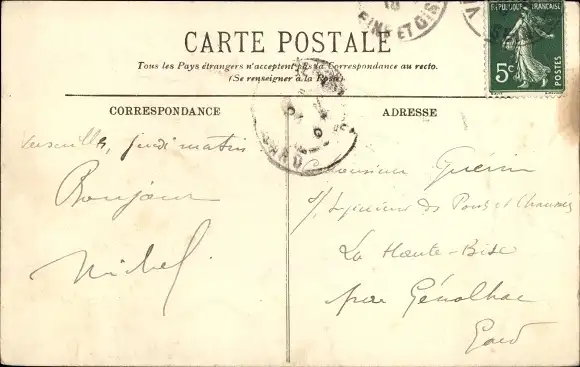 CARTE POSTALE
Tous les Pays étrangers n'acceptent pas la Correspondance au recto.
(Se renseigner à la Poste)
REPUBLIQUE FRANÇAISE
5c
POSTES
SEINE ET OISE
CORRESPONDANCE
Versailles, jeudi matin
Bonjour
Michel.
ADRESSE
Monsieur Guérin
s/ Ingénieur des Ponts et Chaussées
La Haute-Bise
par Génolhac
Gard
GARD